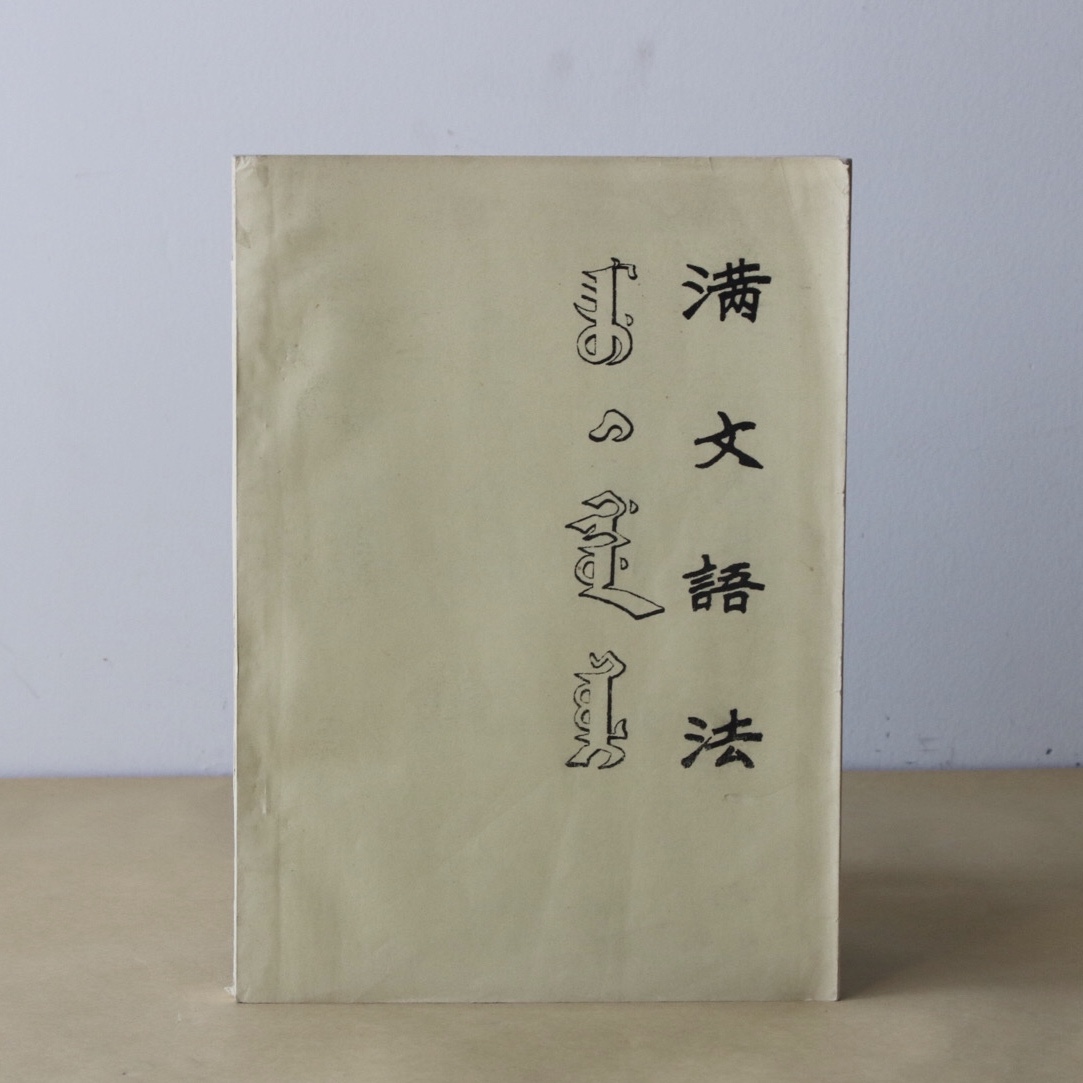 满文語法
ᠮᠠᠨᠵᡠ ᡳ ᡤᡳᠰᡠᠨ ᡴᠣᠣᠯᡳ